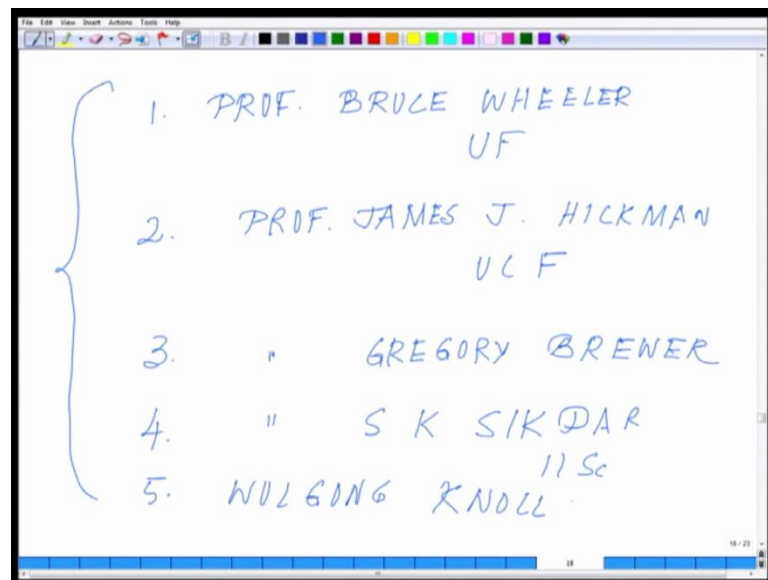 File Edit View Insert Actions Tools Help
1. PROF. BRUCE WHEELER
UF
2. PROF. JAMES J. HICKMAN
UCF
3. " GREGORY BREWER
4. " S K SIKDAR
IISc
5. WOLGONG KNOLL
18 / 23
18